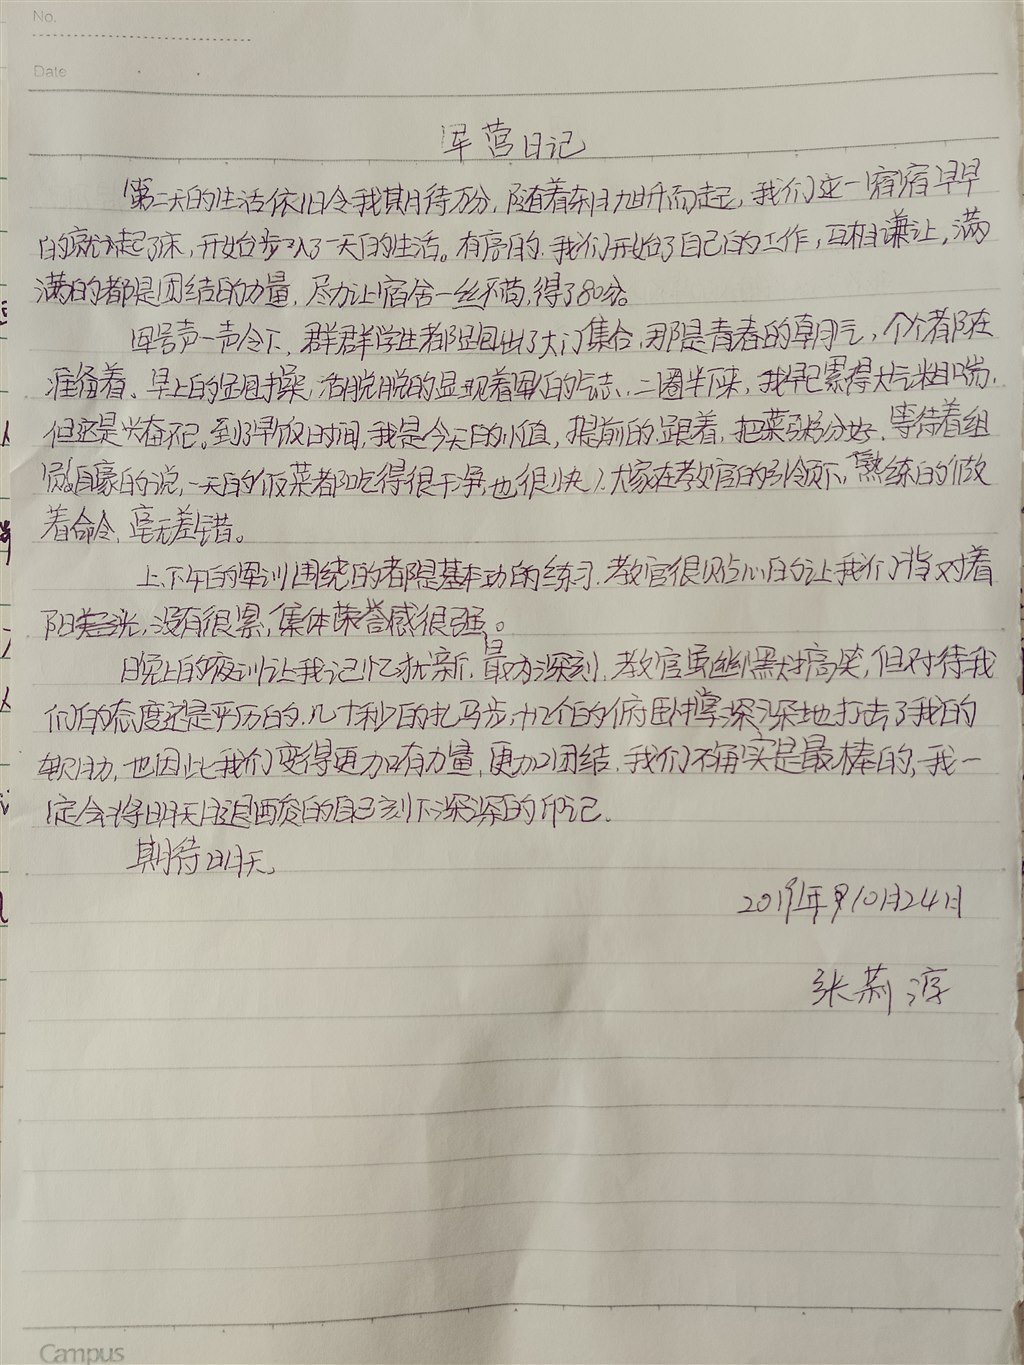 No.
Date
军营日记
第二天的生活依旧令我期待万分，随着东日旭升而起，我们这一宿宿早早
的就起了床，开始步入了一天的生活。有序的，我们开始了自己的工作，互相谦让，满
满的都是团结的力量，尽力让宿舍一丝不苟，得了80分。
军号声一声令下，群群学生都跑出了大门集合，那是青春的朝气，个个都在
准备着、早上的晨跑操，活脱脱的显现着军人的气志、二圈半下来，我早已累得大气粗喘，
但还是兴奋不已。到了早饭时间，我是今天的小值，提前的跟着，把菜粥分好，等待着组
员。自豪的说，一天的饭菜都吃得很干净，也很快！大家在教官的引领下，熟练的做
着命令，毫无差错。
上、下午的军训围绕的都是基本功的练习，教官很贴心的让我们背对着
阳光，没有很累，集体荣誉感很强。
晚上的夜训让我记忆犹新，最为深刻，教官虽幽默搞笑，但对待我
们的态度还是严厉的，几十秒的扎马步，十几个的俯卧撑深深地打击了我的
软肋，也因此我们变得更加有力量，更加团结，我们不再实是最棒的，我一
定会将明天的自己刻下深深的印记。
期待明天。
2019年10月24日
张莉淳
Campus